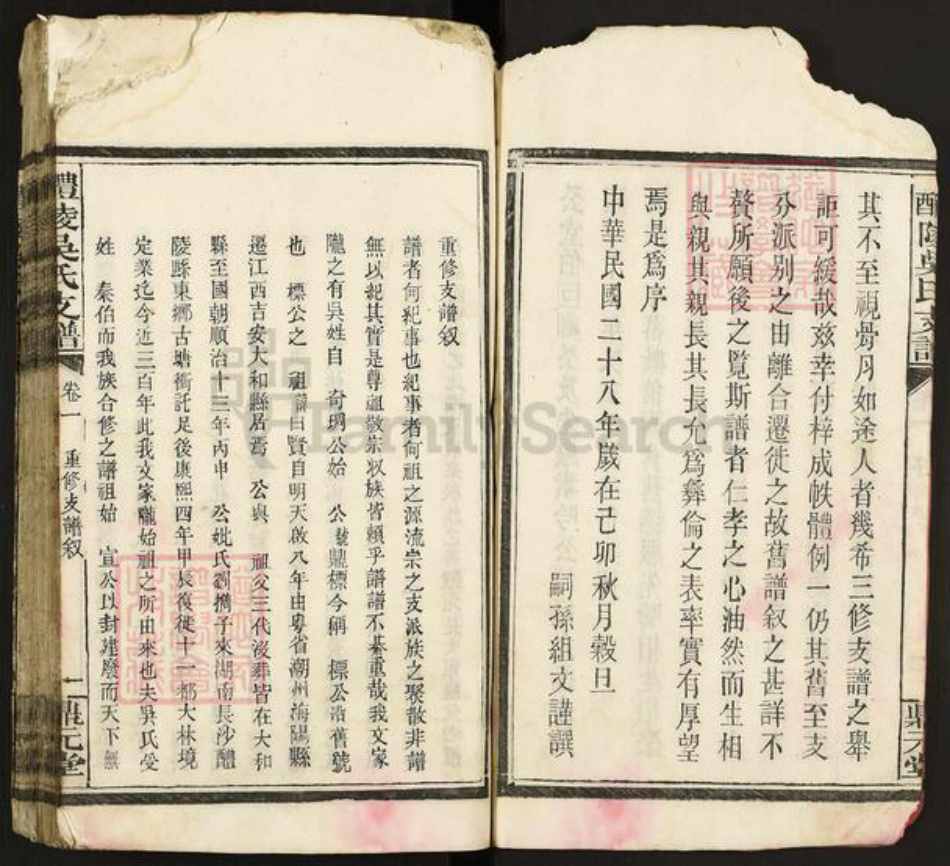 其不至視骨肉如途人者幾希三修支譜之舉
詎可緩哉茲幸付梓成帙體例一仍其舊至支
分派別之由離合遷徙之故舊譜叙之甚詳不
贅所願後之覽斯譜者仁孝之心油然而生相
與親其親長其長允爲彝倫之表率實有厚望
焉是爲序
中華民國二十八年歲在己卯秋月穀旦
嗣孫組文謹譔
鼎元堂
重修支譜叙
譜者何紀事也紀事者何祖之源流宗之支派族之聚散非譜
無以紀其實是尊祖敬宗收族皆賴乎譜譜不綦重哉我文家
隴之有吳姓自 奇琱公始 公號鼎標今稱 標公沿舊號
也 標公之 祖諱曰賢自明天啟八年由粵省潮州海陽縣
遷江西吉安大和縣居焉 公與 祖父三代沒葬皆在大和
縣至國朝順治十三年丙申 公妣氏劉攜子來湖南長沙醴
陵縣東鄉古塘衝託足後康熙四年甲辰復徙十一都大林境
定業迄今近三百年此我文家隴始祖之所由來也夫吳氏受
姓 泰伯而我族合修之譜祖始 宣公以封建廢而天下無
醴陵吳氏支譜
卷一
重修支譜叙
二
鼎元堂
FamilySearch